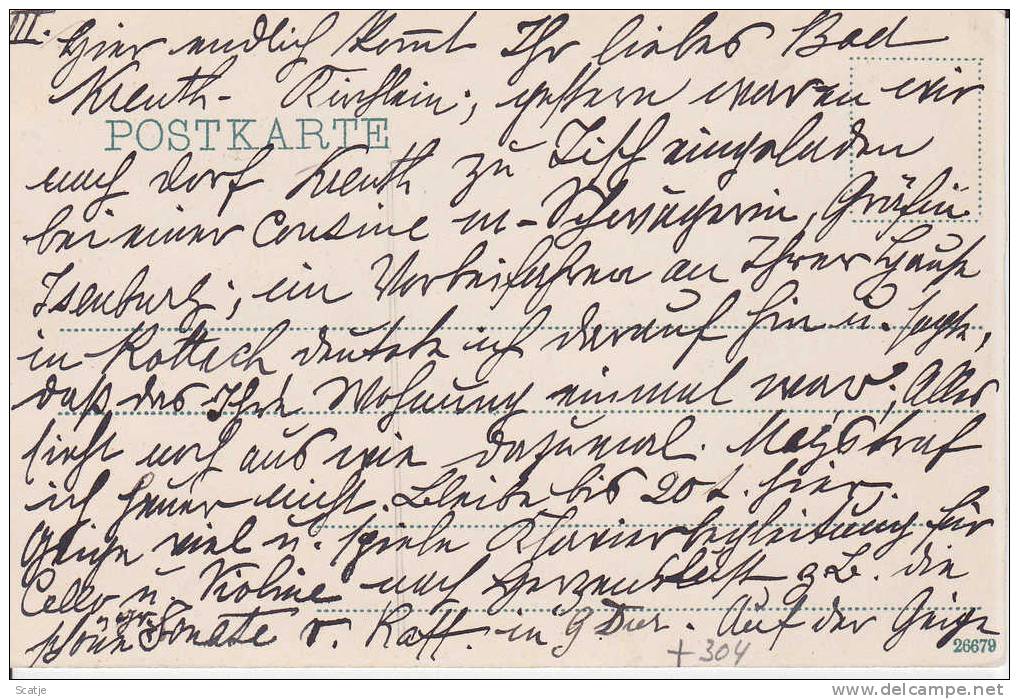 III. Hier endlich kommt Ihr liebes Bad
Kreuth- Kirchlein; gestern waren wir
POSTKARTE
nach Dorf Kreuth zu Tisch eingeladen
bei einer Cousine m- Schwägerin, Gräfin
Isenburg; im Vorbeifahren an Ihrer Hause
in Rottach deutete ich darauf hin u. sagte,
daß das Ihre Wohnung einmal war; Alles
sieht noch aus wie dazumal.
ich heuer nicht. Bleibe bis 20t. hier.
Geige viel u. spiele Klavierbegleitung für
Cello u. Violine nach Herzenslust z.B. die
schöne Sonate v. Raff. in G Dur. Auf der Geige
+304
26679
Scatje
www.delcampe.net